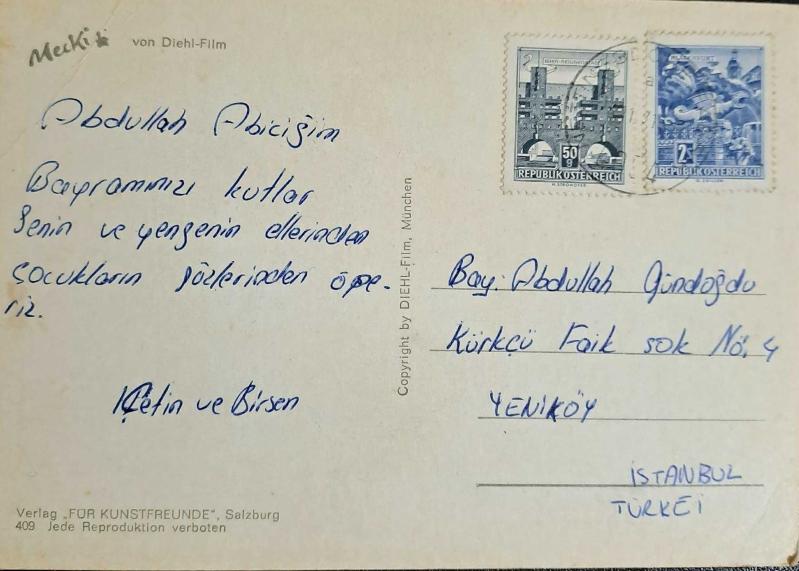 Mecki
von Diehl-Film
Abdullah Abiciğim
Bayramınızı kutlar
Senin ve yengenin ellerinden
çocukların gözlerinden öpe-
riz.
Çetin ve Birsen
Verlag „FÜR KUNSTFREUNDE", Salzburg
409 Jede Reproduktion verboten
Copyright by DIEHL-Film, München
50
g
REPUBLIK ÖSTERREICH
KLAGENFURT
2S
REPUBLIK ÖSTERREICH
Bay. Abdullah Gündoğdu
Kürkçü Faik sok No. 4
YENİKÖY
İSTANBUL
TÜRKEİ